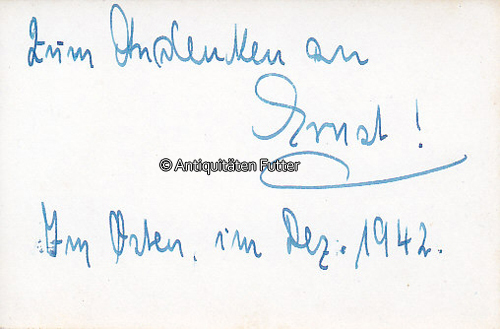 Zum Andenken an
Ernst!
© Antiquitäten Futter
Im Osten, im Dez. 1942.